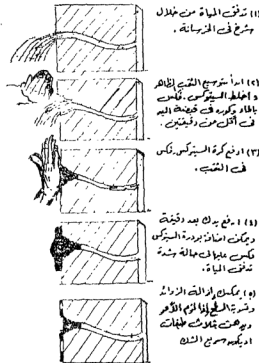 (١) تدفق المياة من خلال
شرخ فى الخرسانة .
(٢) ابدأ بتوسيع الثقب الظاهر
و اخلط السيتوكس . فكس
بالماء وكوره فى قبضة اليد
فى أقل من دقيقتين .
(٣) ادفع كرة السيتوكس . فكس
فى الثقب .
(٤) ارفع يدك بعد دقيقة
ويمكن اضافة بودرة السيتوكس
فكس عليها فى حالة شدة
تدفق المياة .
(٥) يمكنك إزالة الزوائد
وتسوية السطح إذا لزم الأمر
ويدهن بثلاث طبقات
اديكور سريع الشك